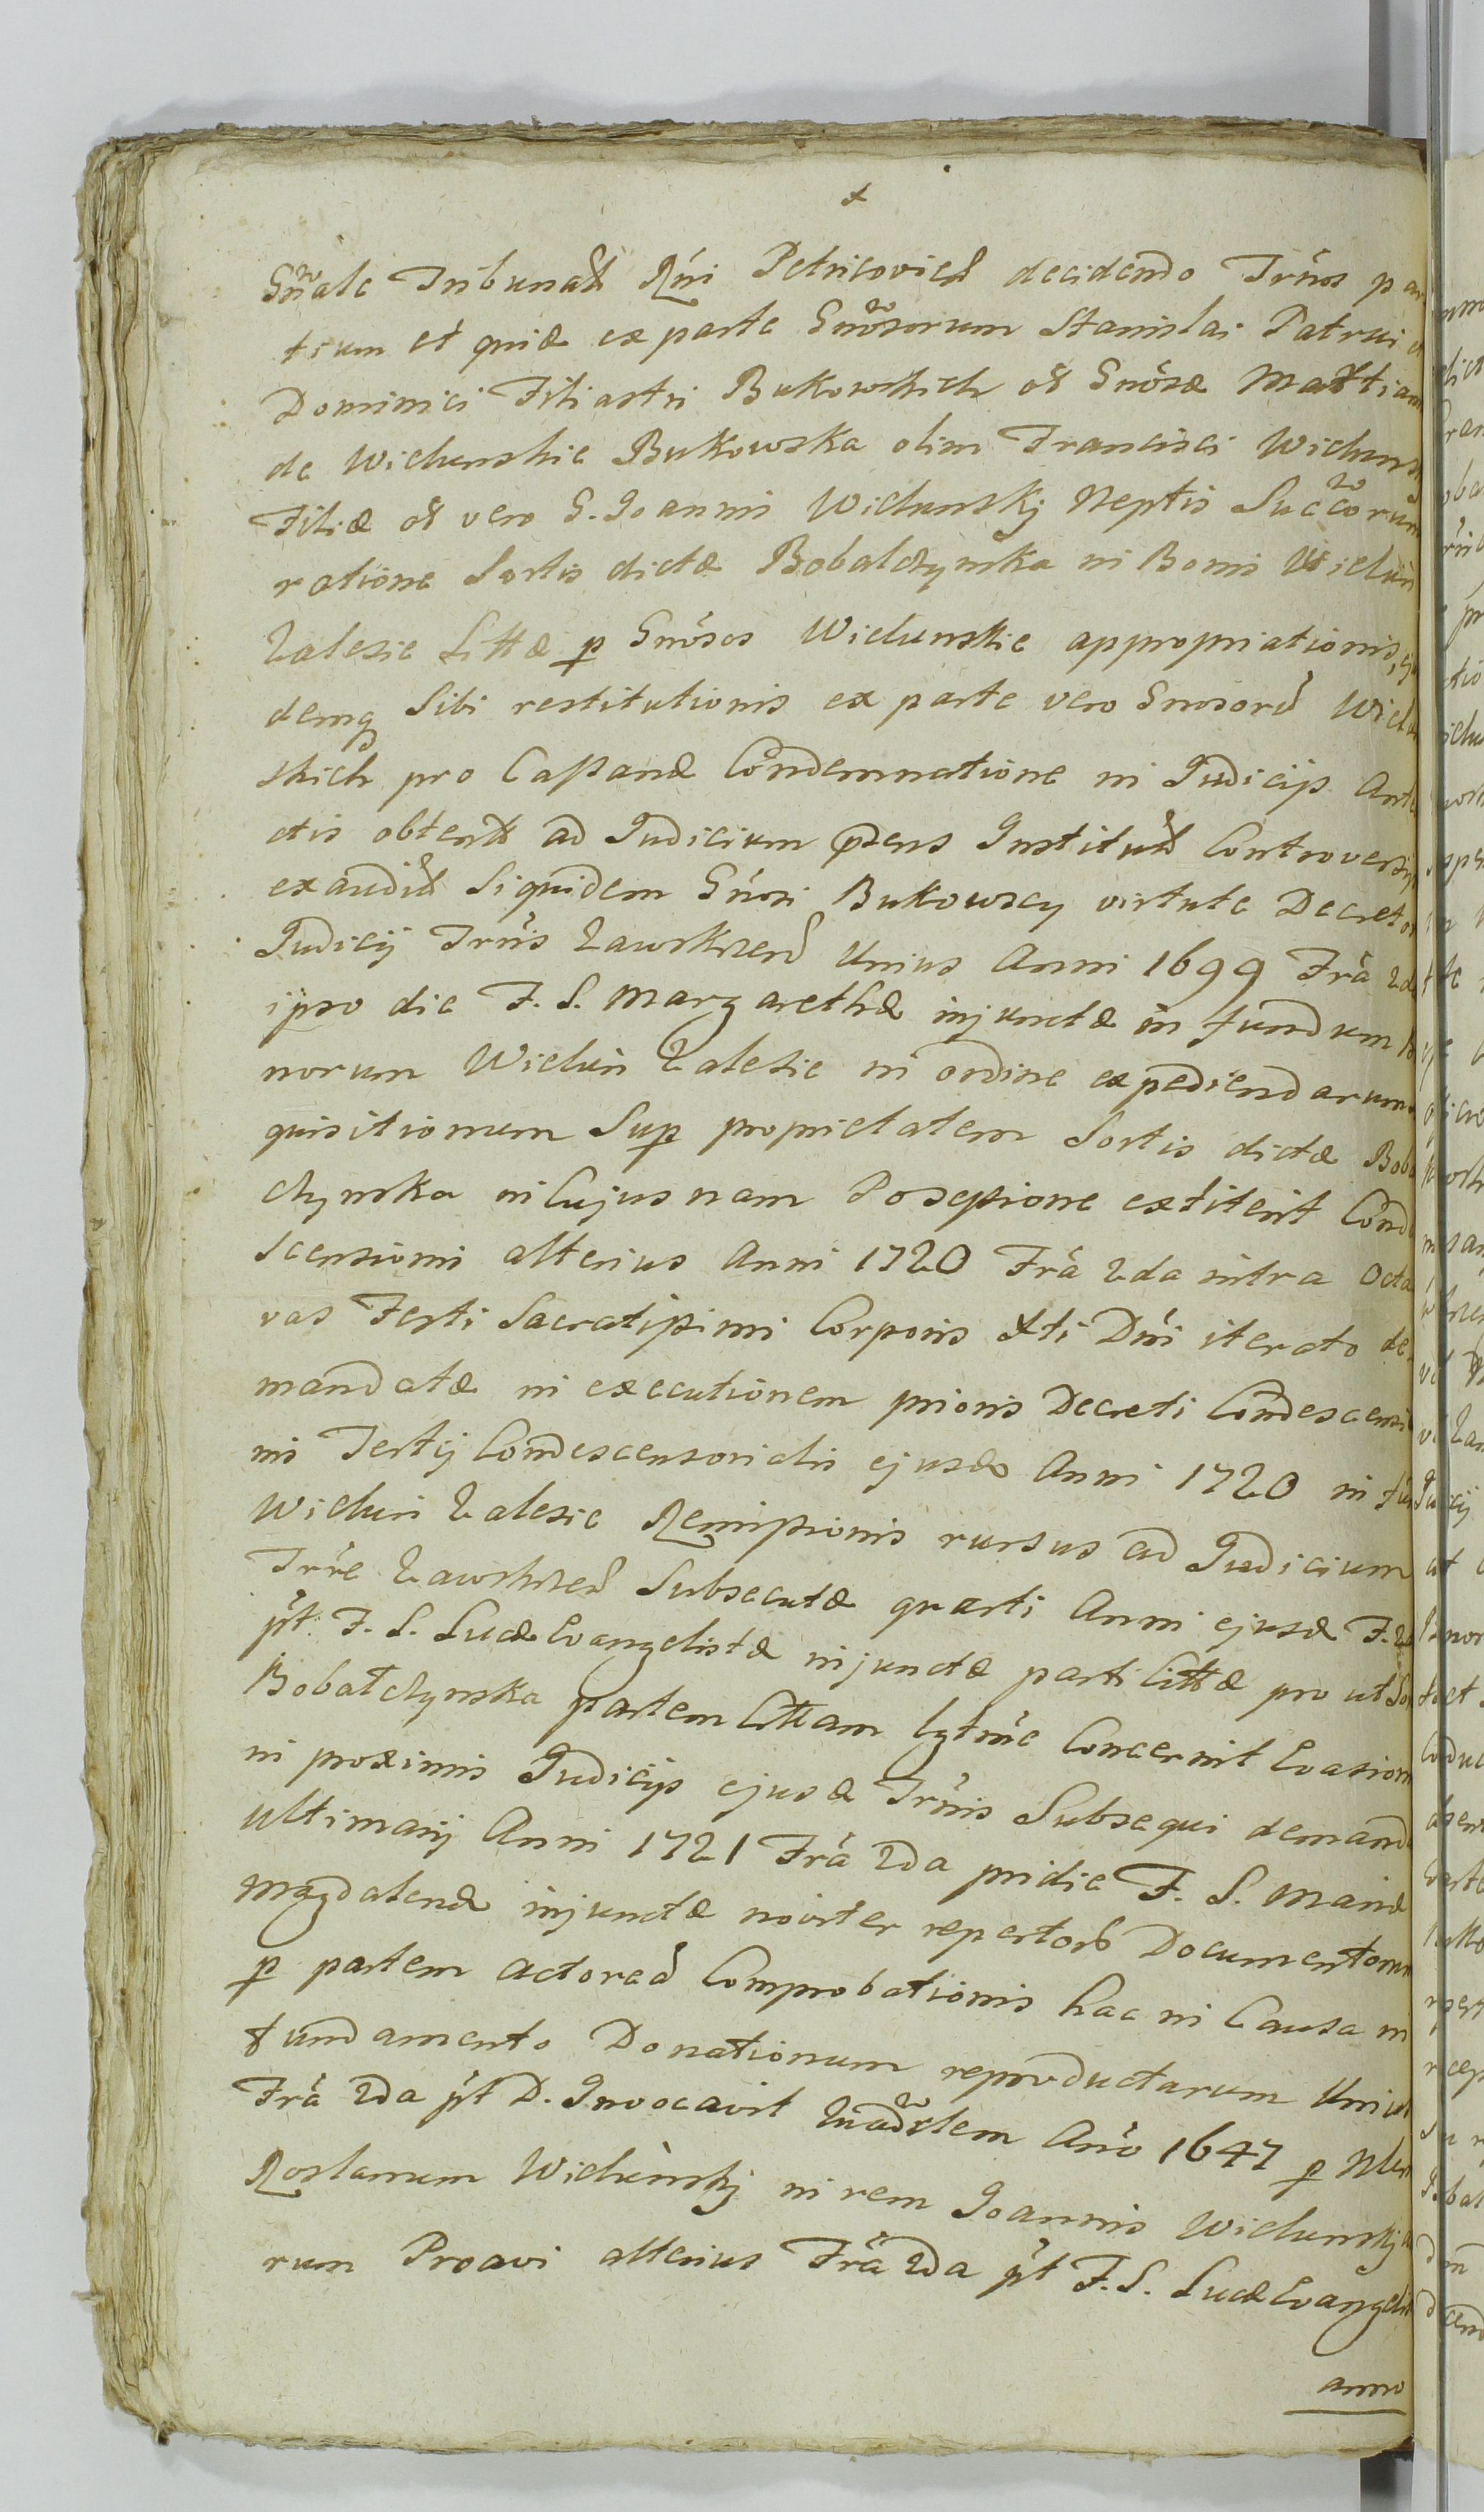 +
Gnrale Tribunal Rni Petricovien decidendo Trnos par
tium et quidẽ ex parte Gnrosorum Stanislai Patrui et
Dominici Filiastri Bukowskich os Gnosæ Mattian
de Wielunskie Bukowska olim Francisci Wieluns
Filiæ os vero G. Joannis Wielunskij Neptis Succorum
ratione Sortis dictæ Bobalczynska in Bonis Wielun
Zalesie sittæ p Gnosos Wielunskie appropriationis,
demq sibi restitutionis ex parte vero Gnosorũ Wielun
skich pro Cassandã Condemnatione in Judicijs Ante
ctis obtentã ad Judicium pñsens Institutã Controversijs
exauditis Siquidem Gnosi Bukowscy virtute Decretor
Judicij Trris Rawskiens Unius Anni 1699 Fra 2da
ipso die F. S. Margarethæ injunctæ in fundum bo
norum Wielun Zalesie in ordine expediendarum
quisitionum Sup proprietatem Sortis dictæ Bobal
czynska in Cujusnam Possessione extiterit Conde
scensionis alterius Anni 1720 Fra 2da intra Octa
vas Festi Sacratissimi Corporis Xti Dni iterato de
mandatæ in executionem prioris Decreti Condescensio
nis Tertij Condescensorialis ejusdẽ Anni 1720 in fun
Wielun Zalesie Remissionis rursus ad Judicium
Trre Rawskiens Subsecutæ quarti Anni ejusdẽ F. 2da
pt: F. S. Lucæ Evangelistæ injunctæ parti Cittæ pro ut Sor
Bobalczynska partem Cittam lgtme Concernit Evasionis
in proximis Judicijs ejusdẽ Trris Subsequi demand
ultimarij Anni 1721 Fra 2da pridie F. S. Mariæ
Magdalenæ injunctæ noviter repertorũ Documentorum
p partem actoreã Comprobationis hac in Causa in
fundamento Donationum reproductarum Unius
Fra 2da pt D. Invocavit Quadrlem Ano 1647 p
Roslanum Wielunskij in rem Joannis Wielunskij
rum Proavi alterius Fra 2da pt F. S. Lucæ Evangelis
anno